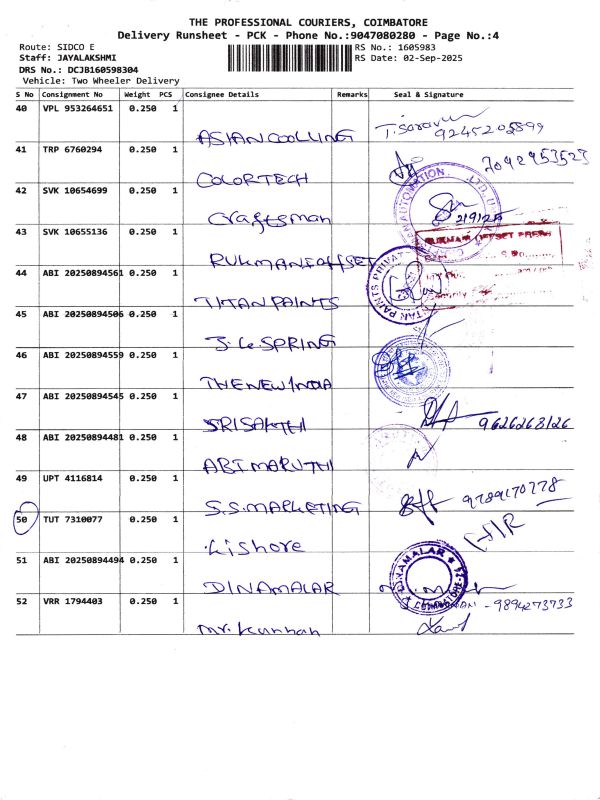 THE PROFESSIONAL COURIERS, COIMBATORE
Delivery Runsheet - PCK - Phone No.:9047080280 - Page No.:4
Route: SIDCO E
RS No.: 1605983
Staff: JAYALAKSHMI
RS Date: 02-Sep-2025
DRS No.: DCJB160598304
Vehicle: Two Wheeler Delivery
S No Consignment No Weight PCS Consignee Details Remarks Seal & Signature
40 VPL 953264651 0.250 1
ASIANCOOLLING
T. Saravan 9245202899
41 TRP 6760294 0.250 1
COLORTECH
7092953523
42 SVK 10654699 0.250 1
Craftsman
2/9/25
43 SVK 10655136 0.250 1
RUKMANI OFFSET
RUKMANI OFFSET PRESS
44 ABI 20250894561 0.250 1
TITAN PAINTS
TITAN PAINTS PRIVATE
45 ABI 20250894506 0.250 1
J. Le SPRING
46 ABI 20250894559 0.250 1
THE NEW INDIA
47 ABI 20250894545 0.250 1
SRI SAKTHI
9626268126
48 ABI 20250894481 0.250 1
ABI MARUTHI
49 UPT 4116814 0.250 1
S.S. MARKETING
9789170778
50 TUT 7310077 0.250 1
Kishore
HIR
51 ABI 20250894494 0.250 1
DINAMALAR
DINAMALAR
COIMBATORE-24
52 VRR 1794403 0.250 1
Mr. Kannan
- 9894273733